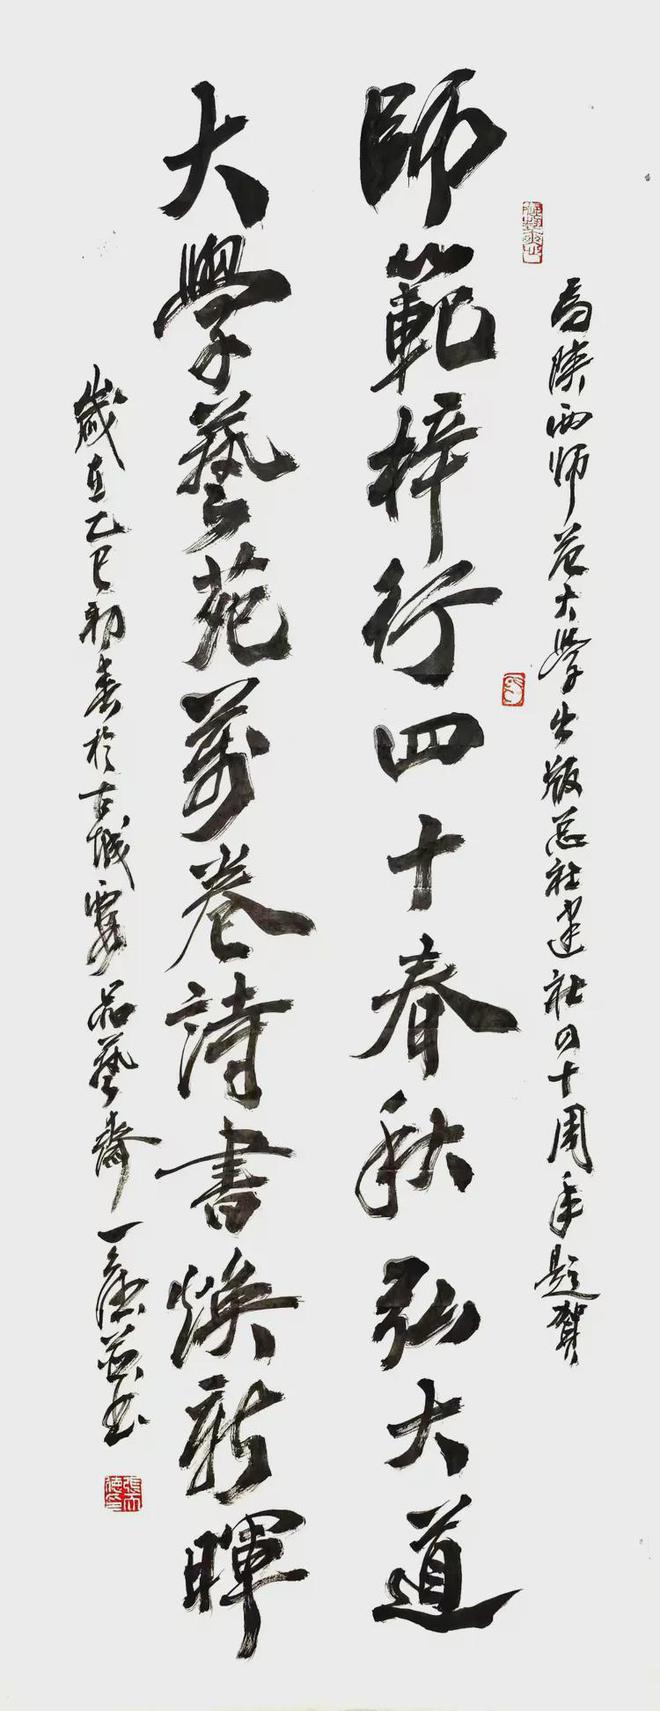 為陕西师范大学出版总社建社四十周年题贺
師範梓行四十春秋弘大道
大學藝苑萬卷詩書焕新暉
歲在乙巳初春於古城
品藝齋一